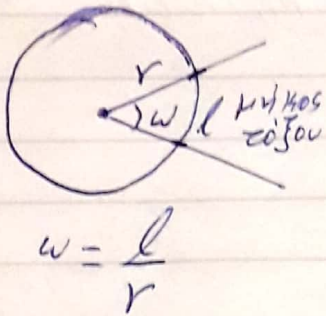 r
ω
l μήκος
τόξου
ω = l/r